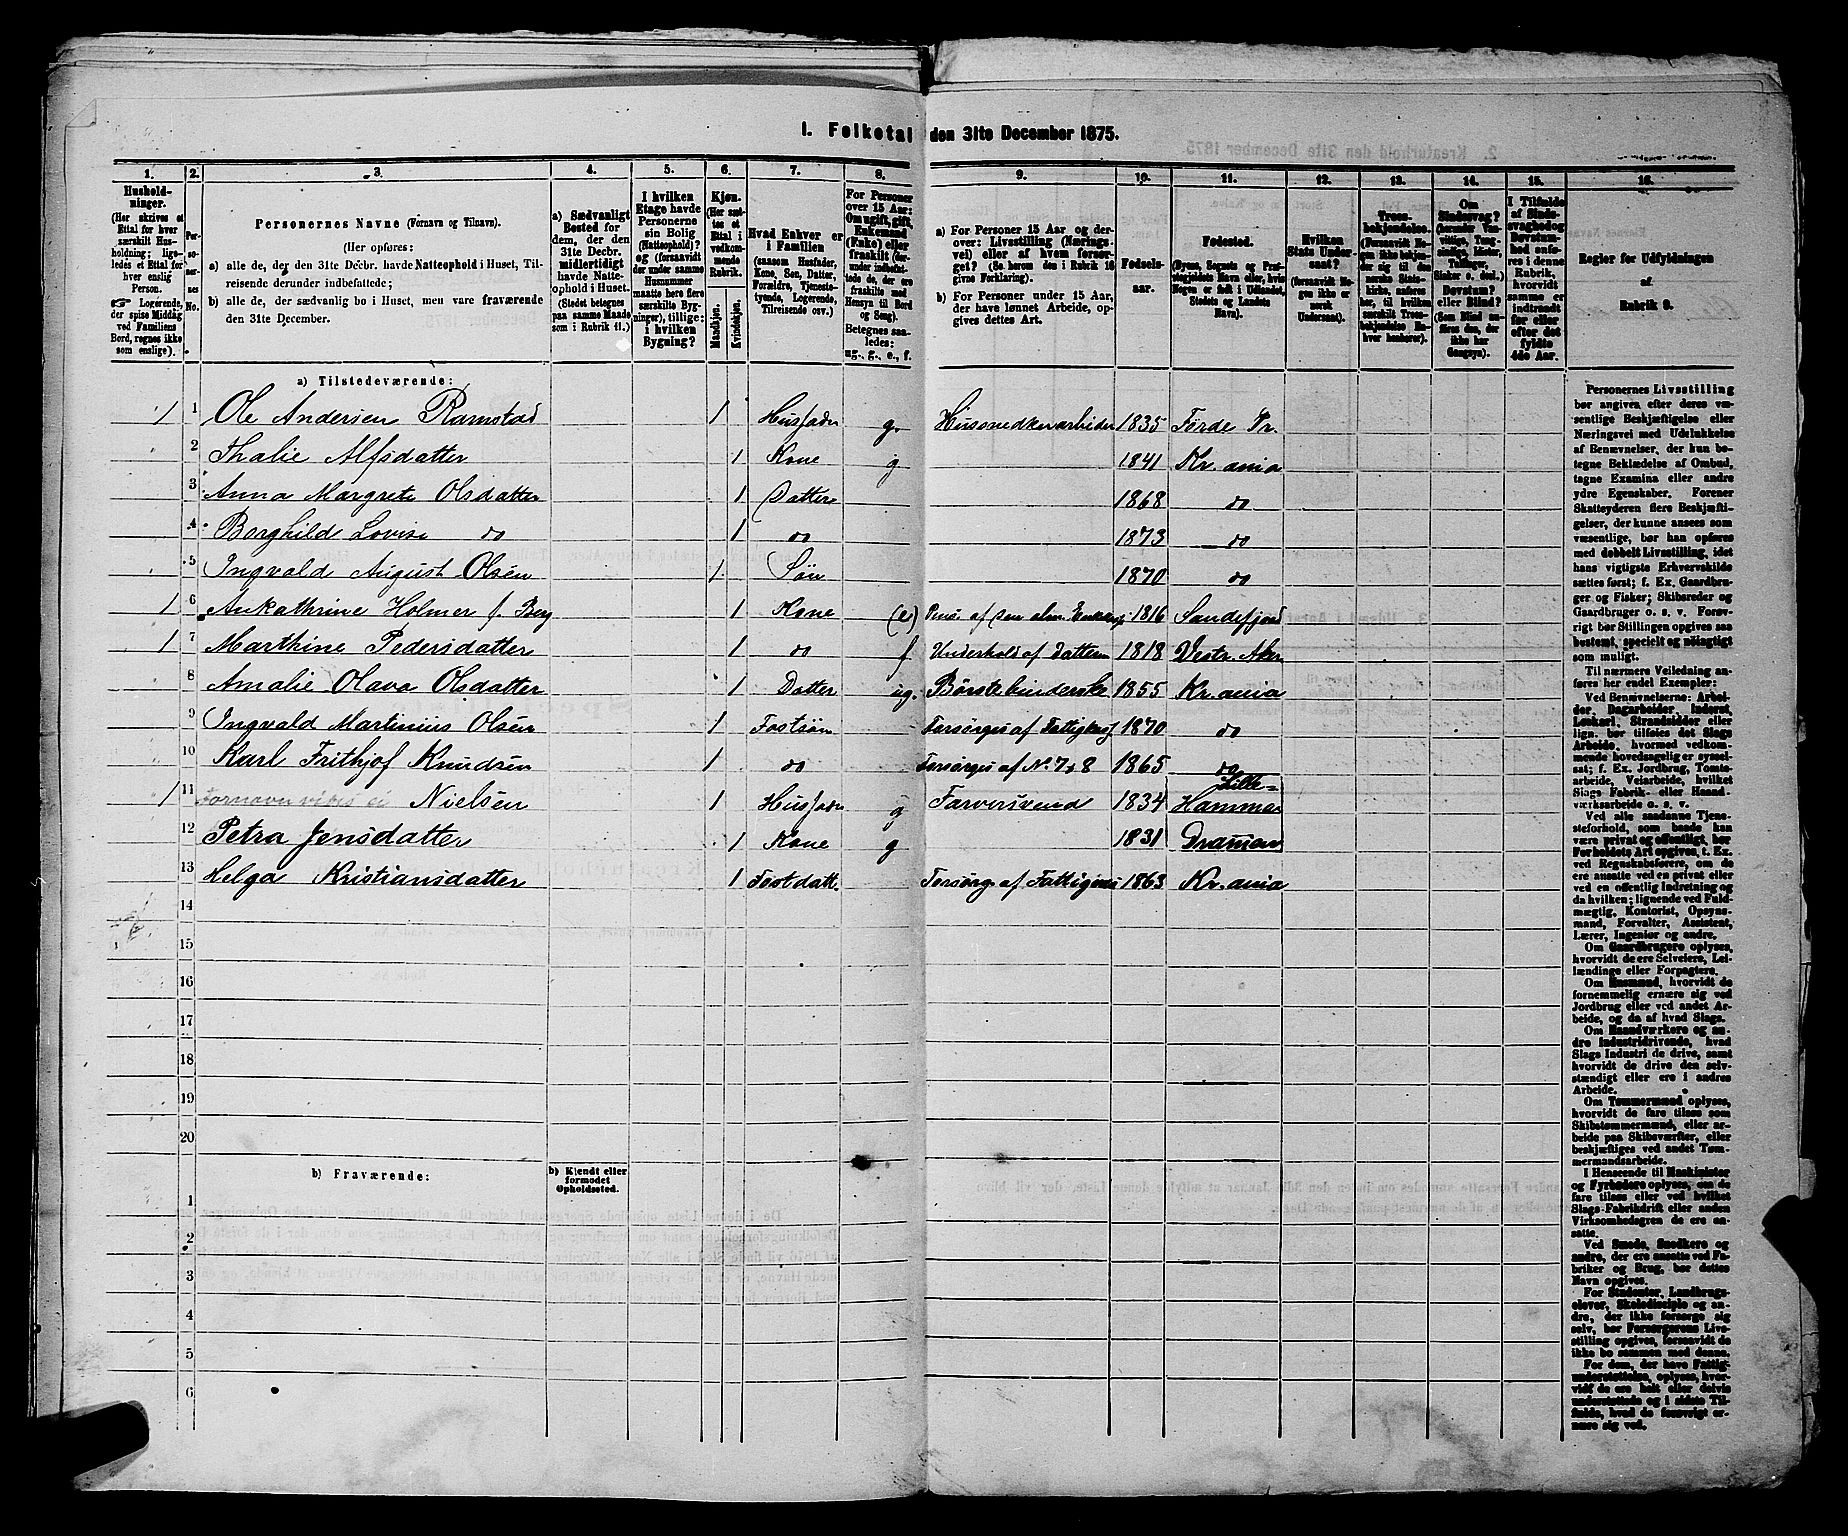 I. Folketal den 31te December 1875.
1. 2. 3. 4. 5. 6. 7. 8. 9. 10. 11. 12. 13. 14. 15. 16.
Husholdninger.
(Her skrives et Ettal for hver særskilt Husholdning; ligeledes et Ettal for hver enslig Person.
☞ Logerende, der spise Middag ved Familiens Bord, regnes ikke som enslige).
Personernes No.
Personernes Navne (Fornavn og Tilnavn).
(Her opføres:
a) alle de, der den 31te Decbr. havde Natteophold i Huset, Tilreisende derunder indbefattede;
b) alle de, der sædvanlig bo i Huset, men vare fraværende den 31te December.
a) Sædvanligt Bosted for dem, der den 31te Decbr. midlertidigt havde Natteophold i Huset.
(Stedet betegnes paa samme Maade som i Rubrik 11.)
I hvilken Etage havde Personerne sin Bolig (Natteophold)? og (forsaavidt der under samme Husnummer maatte høre flere særskilte Bygninger), tillige: i hvilken Bygning?
Kjøn.
(Her sættes et Ettal i vedkommende Rubrik.
Mandkjøn.
Kvindekjøn.
Hvad Enhver er i Familien
(saasom Husfader, Kone, Søn, Datter, Forældre, Tjenestetyende, Logerende, Tilreisende osv.)
For Personer over 15 Aar: Om ugift, gift, Enkemand (Enke) eller fraskilt (derunder indbefattede de, der ere fraskilte med Hensyn til Bord og Seng).
Betegnes saaledes:
ug., g., e., f.
a) For Personer 15 Aar og derover: Livsstilling (Næringsvei) eller af hvem forsørget? (Se herom den i Rubrik 16 givne Forklaring).
b) For Personer under 15 Aar, der have lønnet Arbeide, opgives dettes Art.
Fødselsaar.
Fødested.
(Byens, Sognets og Præstegjeldets Navn eller, hvis Nogen er født i Udlandet, Stedets og Landets Navn).
Hvilken Stats Undersaat?
(forsaavidt Nogen ikke er norsk Undersaat).
Troesbekjendelse.
(Forsaavidt Nogen ikke bekjender sig til den norske Statskirke, anføres her, til hvilken særskilt Troesbekjendelse Enhver henhører).
Om Sindssvag?
Døvstum? eller Blind?
(Som Blind ansees den, der ikke har Gangsyn).
I Tilfælde af Sindssvaghed og Døvstumhed anføres i denne Rubrik, hvorvidt samme er indtraadt før eller efter det fyldte 4de Aar.
Regler for Udfyldningen af Rubrik 9.
a) Tilstedeværende:
1 1 Ole Andersen Ramstad 1 Husfader g. Hussnedkerarbeider 1835 Førde Pr.
2 Thalie Alfsdatter 1 Kone g 1841 Kr.ania
3 Anna Margrete Olsdatter 1 Datter 1868 do
4 Borghild Lovise do 1 do 1873 do
5 Ingvald August Olsen 1 Søn 1870 do
1 6 Ankathrine Holmer f. Berg 1 Kone (e) Pens. af den alm. 1816 Sandefjord
1 7 Marthine Pedersdatter 1 do f Underhold af Datteren 1818 Vestr. Aker
8 Amalie Olava Olsdatter 1 Datter ug. Børstebinderske 1855 Kr.ania
9 Ingvald Martinius Olsen 1 Fostsøn Forsørges af Fattigkas 1870 do
10 Karl Frithjof Knudsen 1 do Forsørges af No 7 & 8 1865 do
1 11 Fornavn vides ei Nielsen 1 Husfader g Farversvend 1834 Lille-Hammer
12 Petra Jensdatter 1 Kone g 1831 Drammen
13 Helga Kristiansdatter 1 Fostdatt. Forsørg. af Fattigvæs 1863 Kr.ania
14
15
16
17
18
19
20
b) Fraværende:
b) Kjendt eller formodet Opholdssted.
1
2
3
4
5
6
Personernes Livsstilling bør angives efter deres væsentlige Beskjæftigelse eller Næringsvei med Udelukkelse af Benævnelser, der kun betegne Beklædelse af Ombud, tagne Examina eller andre ydre Egenskaber. Forener Skatteyderen flere Beskjæftigelser, der kunne ansees som væsentlige, bør han opføres med dobbelt Livsstilling, idet hans vigtigste Erhvervskilde sættes først; f. Ex. Gaardbruger og Fisker; Skibsreder og Gaardbruger o. s. v. Forøvrigt bør Stillingen opgives saa bestemt, specielt og nøiagtigt som muligt.
Til nærmere Veiledning anføres her endel Exempler:
Ved Benævnelserne: Arbeider, Dagarbeider, Inderst, Løskarl, Strandsidder eller lign. bør tilføies det Slags Arbeide, hvormed vedkommende hovedsagelig er sysselsat; f. Ex. Jordbrug, Tomtearbeide, Veiarbeide, hvilket Slags Fabrik- eller Haandværksarbeide o. s. v.
Ved alle saadanne Tjenesteforhold, som baade kan være privat og offentligt, bør Forholdets Art opgives, f. Ex. ved Regnskabsførere, om de ere ansatte ved en privat eller ved en offentlig Indretning og da hvilken; lignende ved Fuldmægtig, Kontorist, Opsynsmand, Forvalter, Assistent, Lærer, Ingeniør og andre.
Om Gaardbrugere oplyses, hvorvidt de ere Selveiere, Leilændinge eller Forpagtere.
Om Husmænd, hvorvidt de fornemmelig ernære sig ved Jordbrug eller ved andet Arbeide, og da af hvad Slags.
Om Haandværkere og andre Industridrivende, hvad Slags Industri de drive, samt hvorvidt de drive den selvstændigt eller ere i andres Arbeide.
Om Tømmermænd oplyses, hvorvidt de fare tilsøs som Skibstømmermænd, eller arbeide paa Skibsværfter, eller beskjæftiges ved andet Tømmermandsarbeide.
I Henseende til Maskinister og Fyrbødere oplyses, om de fare tilsøs eller ved hvilket Slags Fabrikdrift eller anden Virksomhedsgren de ere ansatte.
Ved Smede, Snedkere og andre, der ere ansatte ved Fabriker og Brug, bør dettes Navn opgives.
For Studenter, Landbrugselever, Skoledisciple og andre, der ikke forsørge sig selv, bør Forsørgerens Livsstilling opgives, forsaavidt de ikke bo sammen med denne.
For dem, der have Fattigunderstøttelse, oplyses, hvorvidt de ere helt eller delvis understøttede og i sidste Tilfælde, hvad de forøvrigt ernære sig ved.